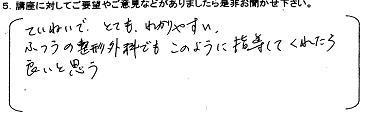 5. 講座に対してご要望やご意見などがありましたら是非お聞かせ下さい。
ていねいで、とても、わかりやすい、
ふつうの整形外科でもこのように指導してくれたら
良いと思う